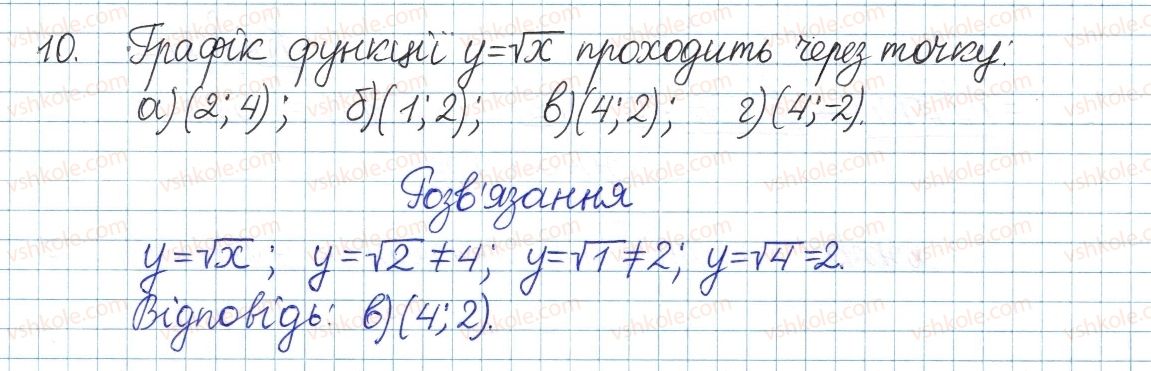 10. Графік функції y=√x проходить через точку:
а) (2; 4); б) (1; 2); в) (4; 2); г) (4; -2).
Розв'язання
y=√x; y=√2≠4; y=√1≠2; y=√4=2.
Відповідь: в) (4; 2).